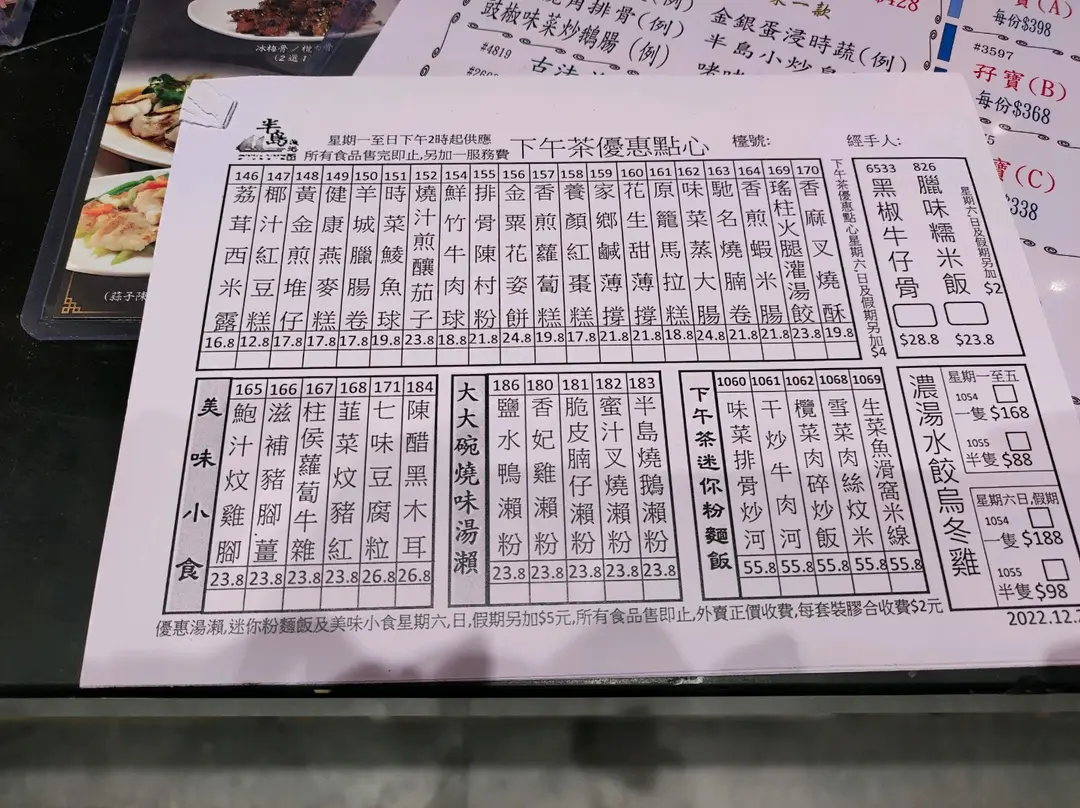 冰梅骨／欖角骨
(2選1)
角排骨(例)
豉椒味菜炒鵝腸(例)
#4819
金銀蛋浸時蔬(例)
半島小炒
一款
$428
(A)
每份$398
#3597
孖寶(B)
每份$368
寶(C)
$338
半島
漁港
星期一至日下午2時起供應
所有食品售完即止,另加一服務費
下午茶優惠點心
檯號:
經手人:
146 荔茸西米露 16.8
147 椰汁紅豆糕 12.8
148 黃金煎堆仔 17.8
149 健康燕麥糕 17.8
150 羊城臘腸卷 17.8
151 時菜鯪魚球 19.8
152 燒汁煎釀茄子 23.8
154 鮮竹牛肉球 18.8
155 排骨陳村粉 21.8
156 金粟花姿餅 24.8
157 香煎蘿蔔糕 19.8
158 養顏紅棗糕 17.8
159 家鄉鹹薄撐 21.8
160 花生甜薄撐 21.8
161 原籠馬拉糕 18.8
162 味菜蒸大腸 24.8
163 馳名燒腩卷 21.8
164 香煎蝦米腸 21.8
169 瑤柱火腿灌湯餃 23.8
170 香麻叉燒酥 19.8
下午茶優惠點心星期六日及假期另加$4
6533 黑椒牛仔骨 $28.8
826 臘味糯米飯 $23.8
星期六日及假期另加$2
美味小食
165 鮑汁炆雞腳 23.8
166 滋補豬腳薑 23.8
167 柱侯蘿蔔牛雜 23.8
168 韮菜炆豬紅 23.8
171 七味豆腐粒 26.8
184 陳醋黑木耳 26.8
大大碗燒味湯瀨
186 鹽水鴨瀨粉 23.8
180 香妃雞瀨粉 23.8
181 脆皮腩仔瀨粉 23.8
182 蜜汁叉燒瀨粉 23.8
183 半島燒鵝瀨粉 23.8
下午茶迷你粉麵飯
1060 味菜排骨炒河 55.8
1061 干炒牛肉河 55.8
1062 欖菜肉碎炒飯 55.8
1068 雪菜肉絲炆米 55.8
1069 生菜魚滑窩米線 55.8
濃湯水餃烏冬雞
星期一至五
1054
一隻$168
1055
半隻$88
星期六日,假期
1054
一隻$188
1055
半隻$98
優惠湯瀨,迷你粉麵飯及美味小食星期六,日,假期另加$5元,所有食品售即止,外賣正價收費,每套裝膠合收費$2元
2022.12.2